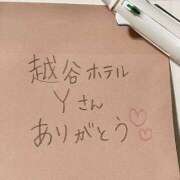 越谷ホテル
Yさん
ありがとう♡♡